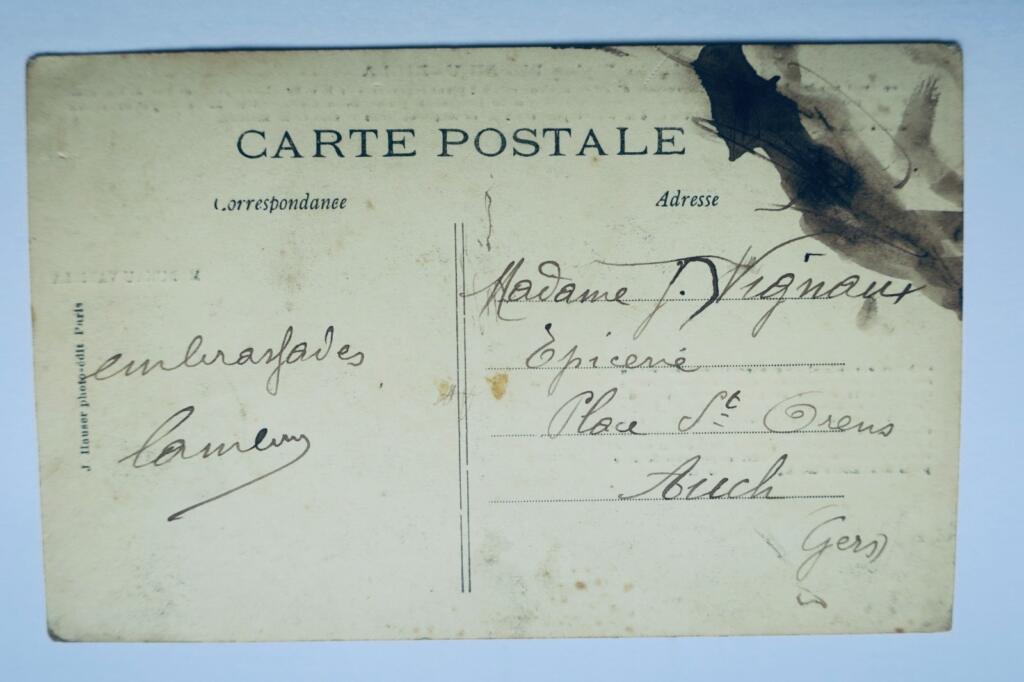 CARTE POSTALE
Correspondance
Adresse
J Hauser photo-édit Paris
embrassades
Madame J. Vignaux
Epicerie
Place St Orens
Auch
(Gers)